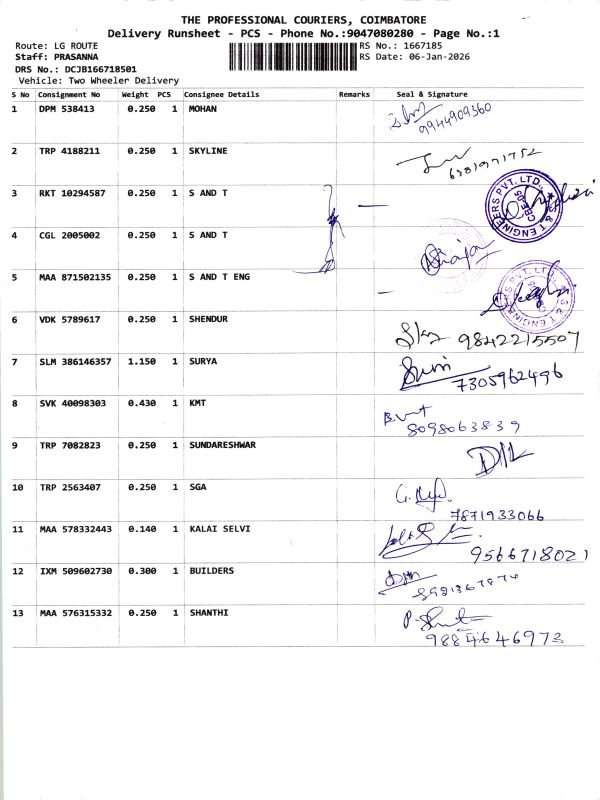 THE PROFESSIONAL COURIERS, COIMBATORE
Delivery Runsheet - PCS - Phone No.:9047080280 - Page No.:1
Route: LG ROUTE RS No.: 1667185
Staff: PRASANNA RS Date: 06-Jan-2026
DRS No.: DCJB166718501
Vehicle: Two Wheeler Delivery
S No Consignment No Weight PCS Consignee Details Remarks Seal & Signature
1 DPM 538413 0.250 1 MOHAN
9944909360
2 TRP 4188211 0.250 1 SKYLINE
3 RKT 10294587 0.250 1 S AND T
S & T ENGINEERS PVT. LTD.,
4 CGL 2005002 0.250 1 S AND T
5 MAA 871502135 0.250 1 S AND T ENG
S & T ENGINEERS PVT. LTD.,
6 VDK 5789617 0.250 1 SHENDUR
9842215507
7 SLM 386146357 1.150 1 SURYA
7305962496
8 SVK 40098303 0.430 1 KMT
8098063839
9 TRP 7082823 0.250 1 SUNDARESHWAR
10 TRP 2563407 0.250 1 SGA
7871933066
11 MAA 578332443 0.140 1 KALAI SELVI
9566718021
12 IXM 509602730 0.300 1 BUILDERS
13 MAA 576315332 0.250 1 SHANTHI
9884646973